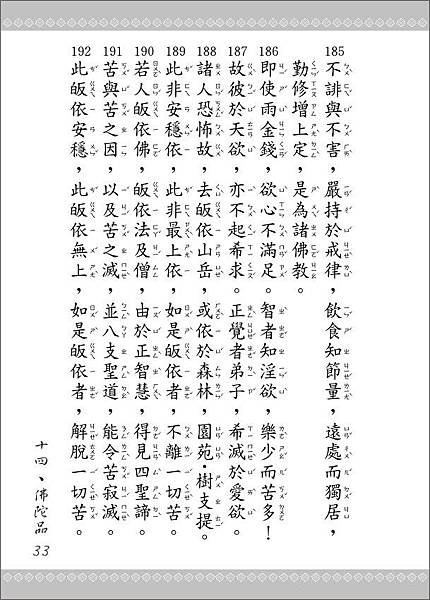 185 不誹與不害，嚴持於戒律，飲食知節量，遠處而獨居，
勤修增上定，是為諸佛教。
186 即使雨金錢，欲心不滿足。智者知淫欲，樂少而苦多！
187 故彼於天欲，亦不起希求。正覺者弟子，希滅於愛欲。
188 諸人恐怖故，去皈依山岳，或依於森林，園苑．樹支提。
189 此非安穩依，此非最上依，如是皈依者，不離一切苦。
190 若人皈依佛，皈依法及僧，由於正智慧，得見四聖諦。
191 苦與苦之因，以及苦之滅，並八支聖道，能令苦寂滅。
192 此皈依安穩，此皈依無上，如是皈依者，解脫一切苦。
十四、佛陀品
33